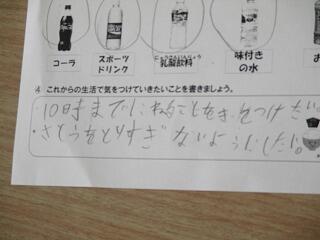 コーラ
スポーツドリンク
乳酸飲料
味付きの水
お
④ これからの生活で気をつけていきたいことを書きましょう。
・10時までにねることをき をつけたい。
・さとうをとりすぎ ないようにしたい。